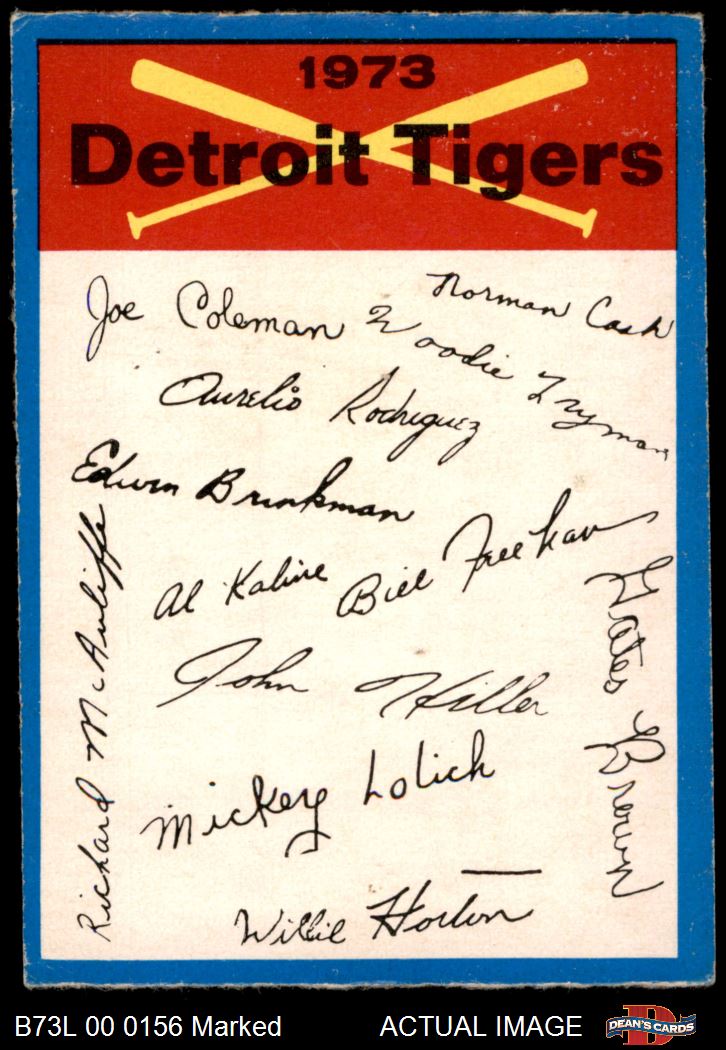 1973
Detroit Tigers
Norman Cash
Joe Coleman
Woodie Fryman
Aurelio Rodriguez
Edwin Brinkman
Bill Freehan
Al Kaline
Gates Brown
Richard McAuliffe
John Hiller
Mickey Lolich
Willie Horton
B73L 00 0156 Marked
ACTUAL IMAGE
D
DEAN'S CARDS